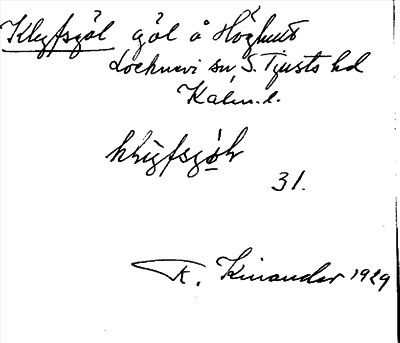 Klyfsgöl göl å Höghult
Locknevi sn, S. Tjusts hd
Kalm. l.
klyfsgöl
31.
R. Kinander 1929